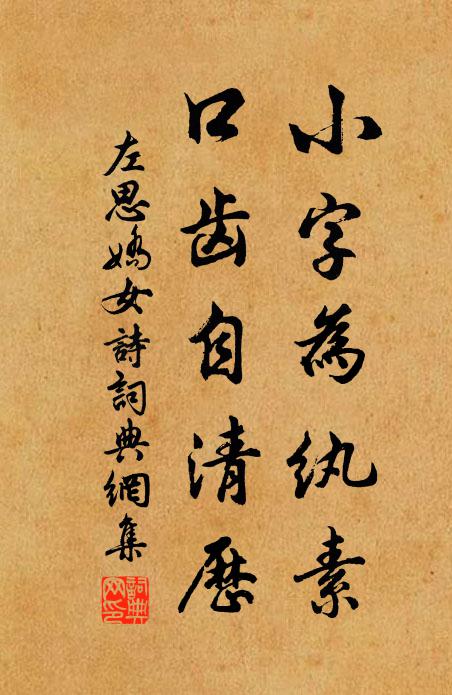 小字為纨素
口齿自清歷
左思嬌女詩詞典網集
詞典网印